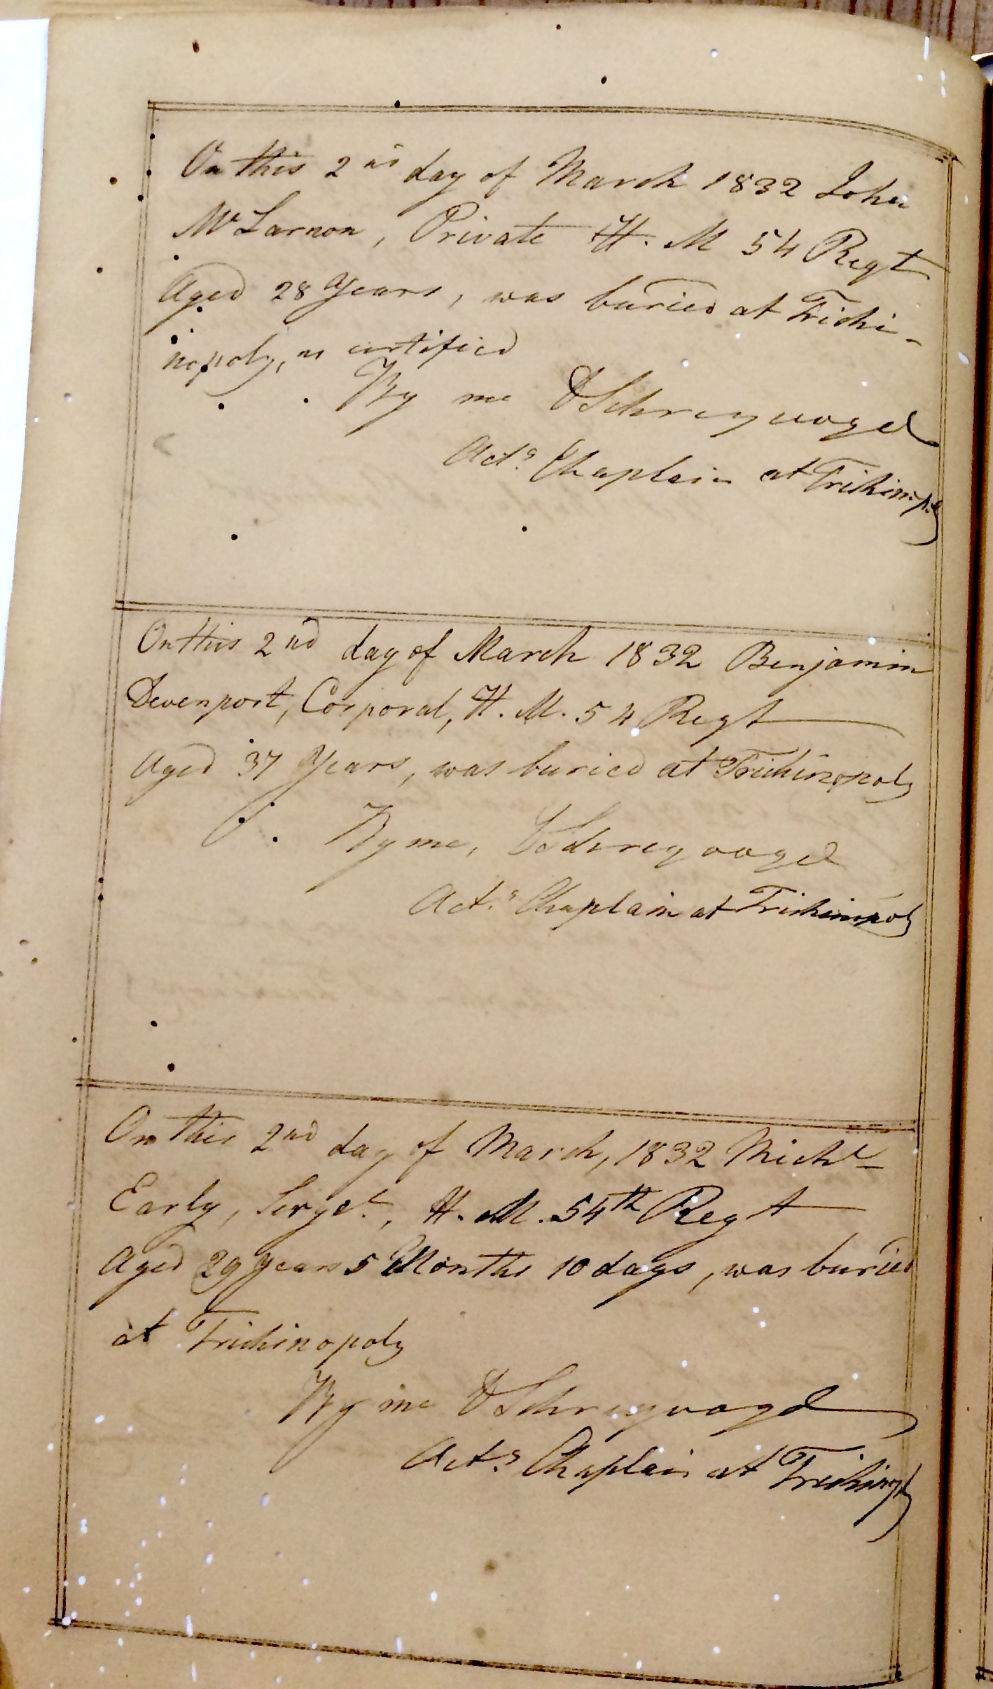 On this 2nd day of March 1832 John
McLarnon, Private H. M 54 Regt
Aged 28 Years, was buried at Trichi-
nopoly, as certified
By me D Schreyvogel
Actg Chaplain at Trichinopoly
On this 2nd day of March 1832 Benjamin
Devenport, Corporal, H. M. 54 Regt
Aged 37 Years, was buried at Trichinopoly
By me, D Schreyvogel
Actg Chaplain at Trichinopoly
On this 2nd day of March, 1832 Michl
Early, Serget., H. M. 54th Regt
Aged 29 years 5 Months 10 days, was buried
at Trichinopoly
By me D Schreyvogel
Actg Chaplain at Trichinoply